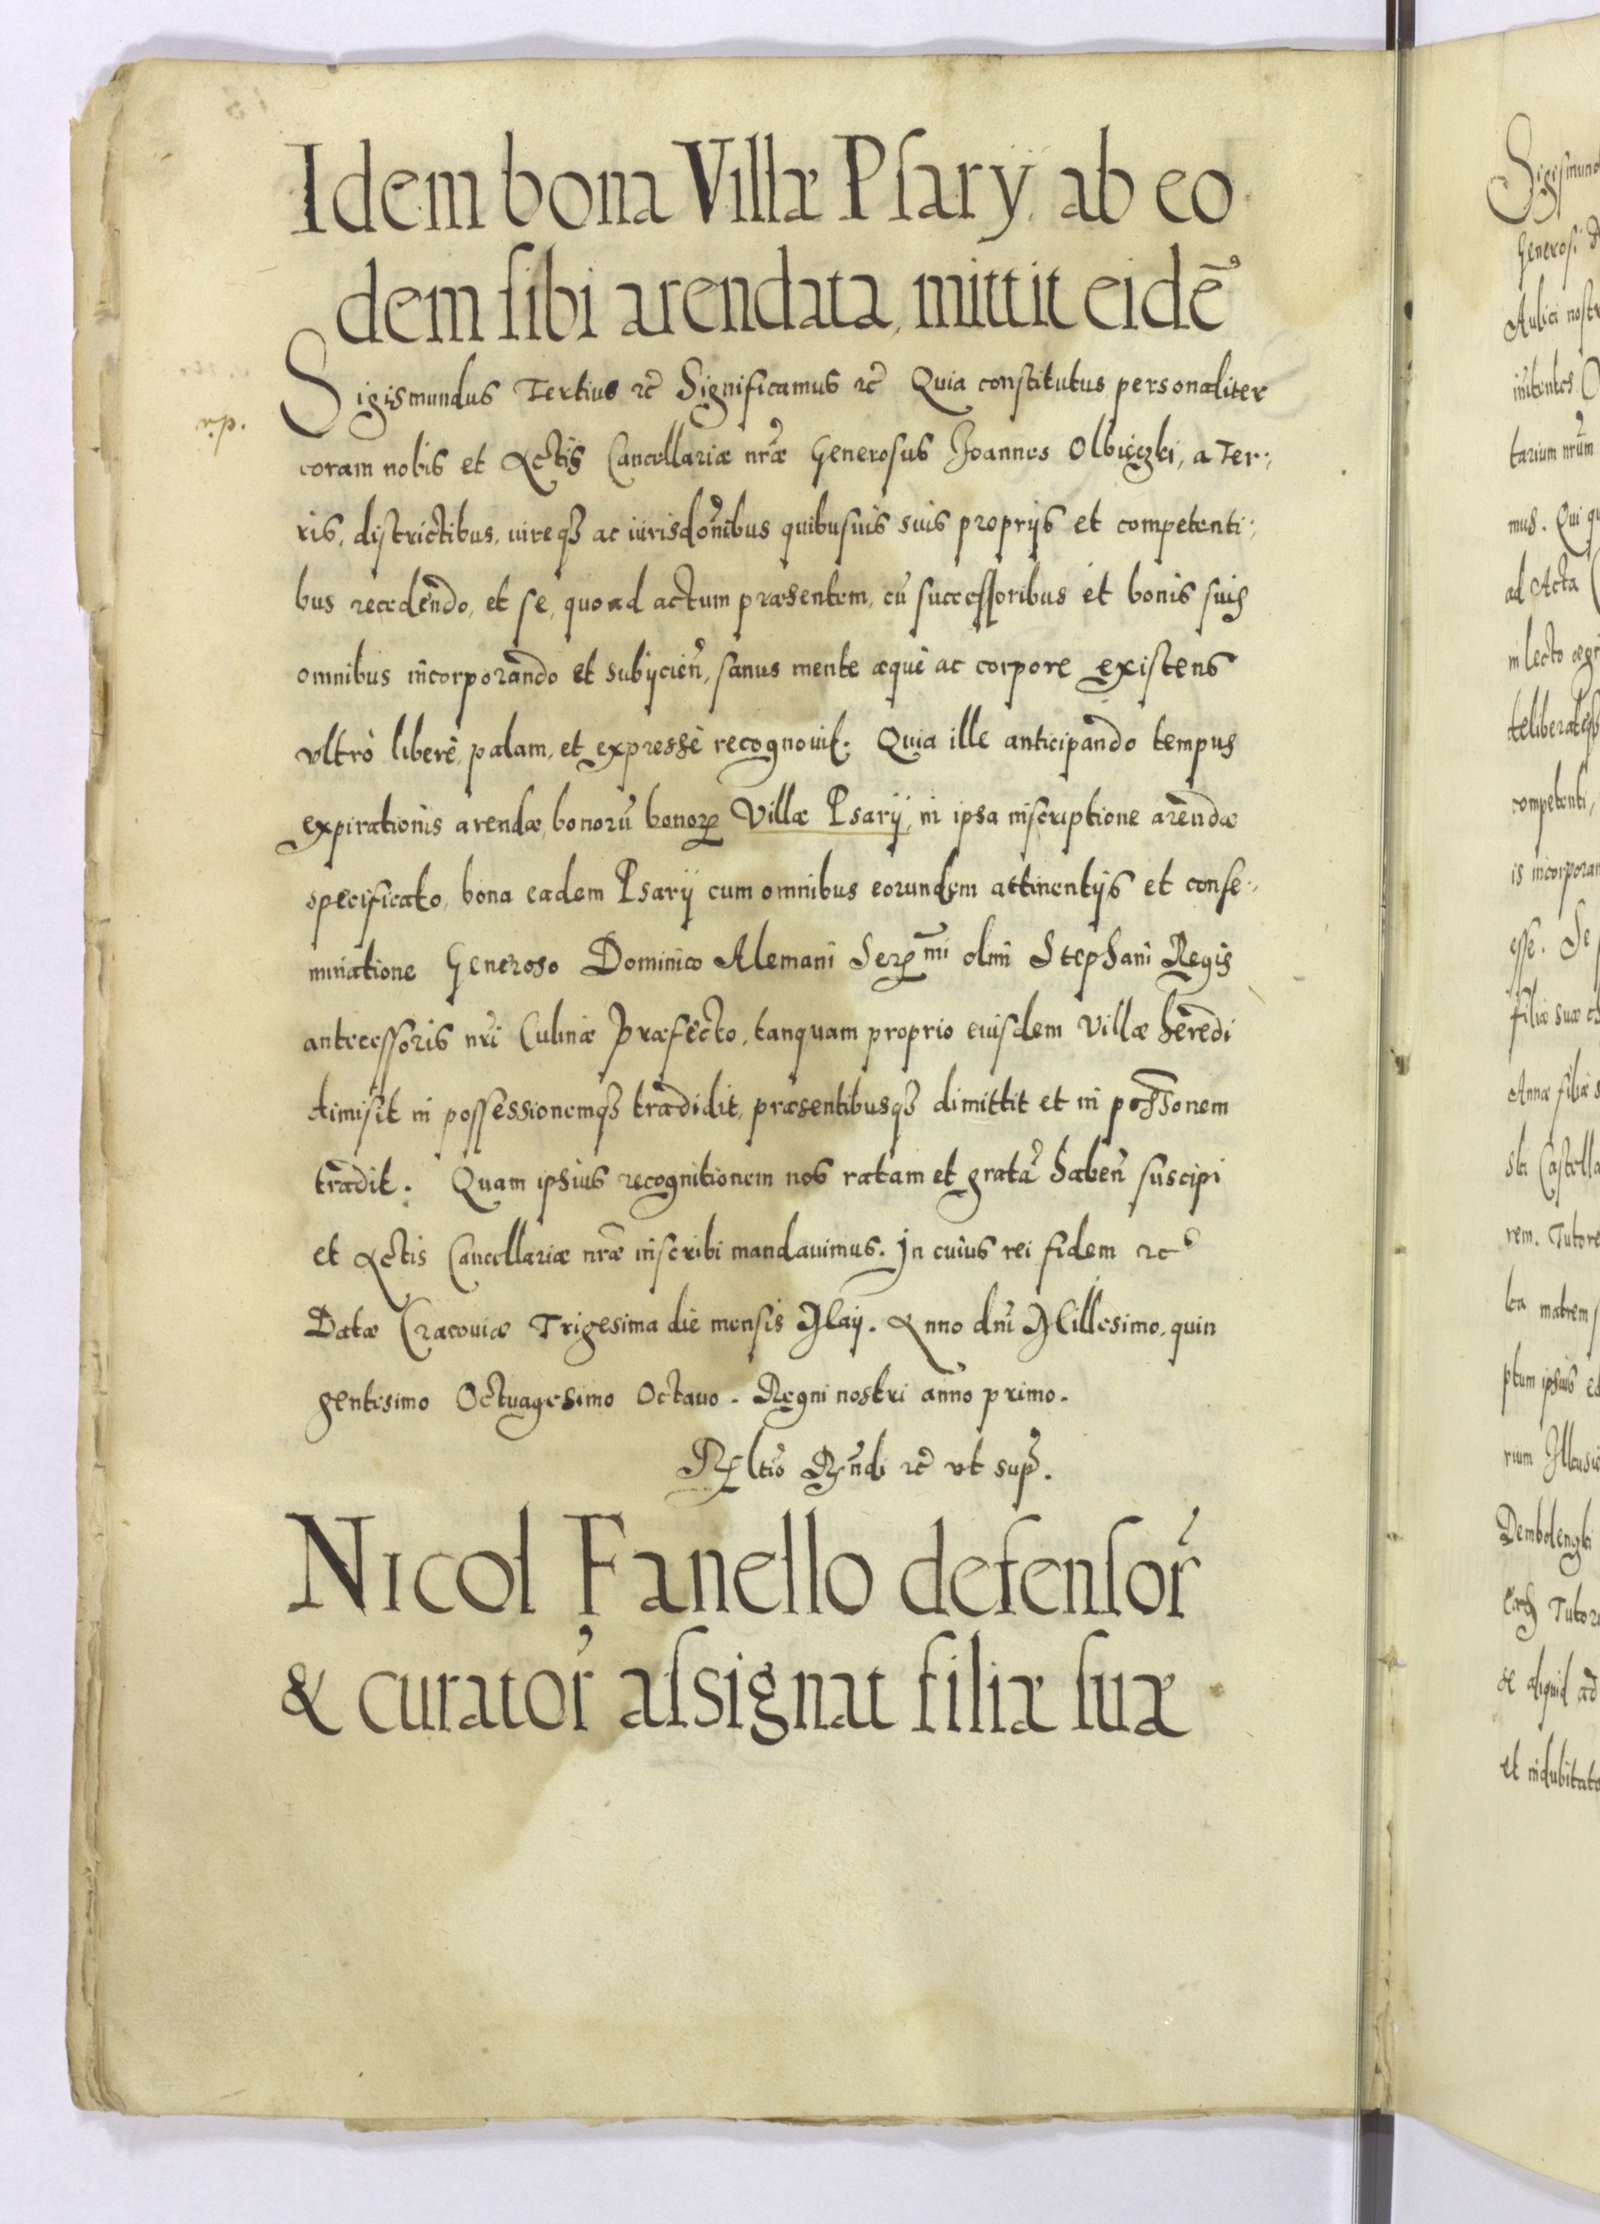 Idem bona Villæ Psary, ab eo
dem sibi arendata, mittit eidē
Sigismundus Tertius ꝛc̄ Significamus ꝛc̄ Quia constitutus personaliter
r.p.
coram nobis et Actis Cancellariæ nr̃æ Generosus Joannes Olbięczki, a Ter:,
ris, districtibus, uireqꝫ ac iurisdōnibus quibusuis suis proprijs et competenti:,
bus recedendo, et se, quoad actum præsentem, cū successoribus et bonis suis
omnibus incorporando et subijcieñ, sanus mente æquè ac corpore existens
vltrò liberè, palam, et expressè recognouit. Quia ille anticipando tempus
expirationis arendæ, bonorū bonorꝝ Villæ Psarij, in ipsa inscriptione arendæ
specificato, bona eadem Psarij cum omnibus eorundem attinentijs et conse:,
minatione Generoso Dominico Alemani Serꝝᵐⁱ olim Stephani Regis
antecessoris nr̃i Culinæ Præfecto, tanquam proprio eiusdem Villæ hæredi
dimisit in possessionemqꝫ tradidit, præsentibusqꝫ dimittit et in possōonem
tradit. Quam ipsius recognitionem nos ratam et gratā habeñ suscipi
et Actis Cancellariæ nr̃æ inscribi mandauimus. In cuius rei fidem ꝛc̄
Datæ Cracouiæ Trigesima die mensis Maij. Anno dñi Millesimo, quin
gentesimo Octuagesimo Octauo. Regni nostri anno primo.
Rltio Rñdi ꝛc̄ vt sup̃.
Nicol Fanello defensor̃
& curator̃ assignat filiæ suæ
Generosi
Aulici nostr
tarium nrūm
mus. Qui qu
ad Acta
in lecto ægr
competenti,
is incorporan
esse. Se
filiæ suæ
Annæ filiæ s
ski Castella
rem. Tutore
ptum ipsius
Tutor
et indubitato